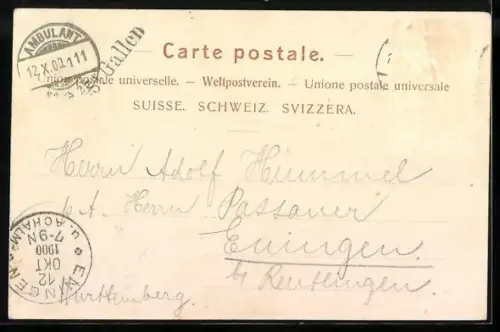 AMBULANT
St. Gallen
Carte postale.
Union postale universelle. – Weltpostverein. – Unione postale universale
SUISSE. SCHWEIZ. SVIZZERA.
Herrn Adolf Himmel
b/A. Herrn Passauer
Eningen
b/ Reutlingen
Württemberg.
ENINGEN u. ACHALM
12 OKT 1900 7-9N